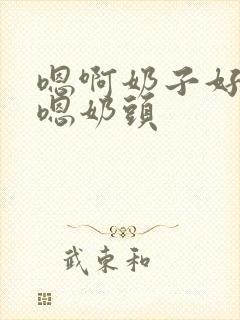 嗯啊奶子好
嗯奶頭
武東和